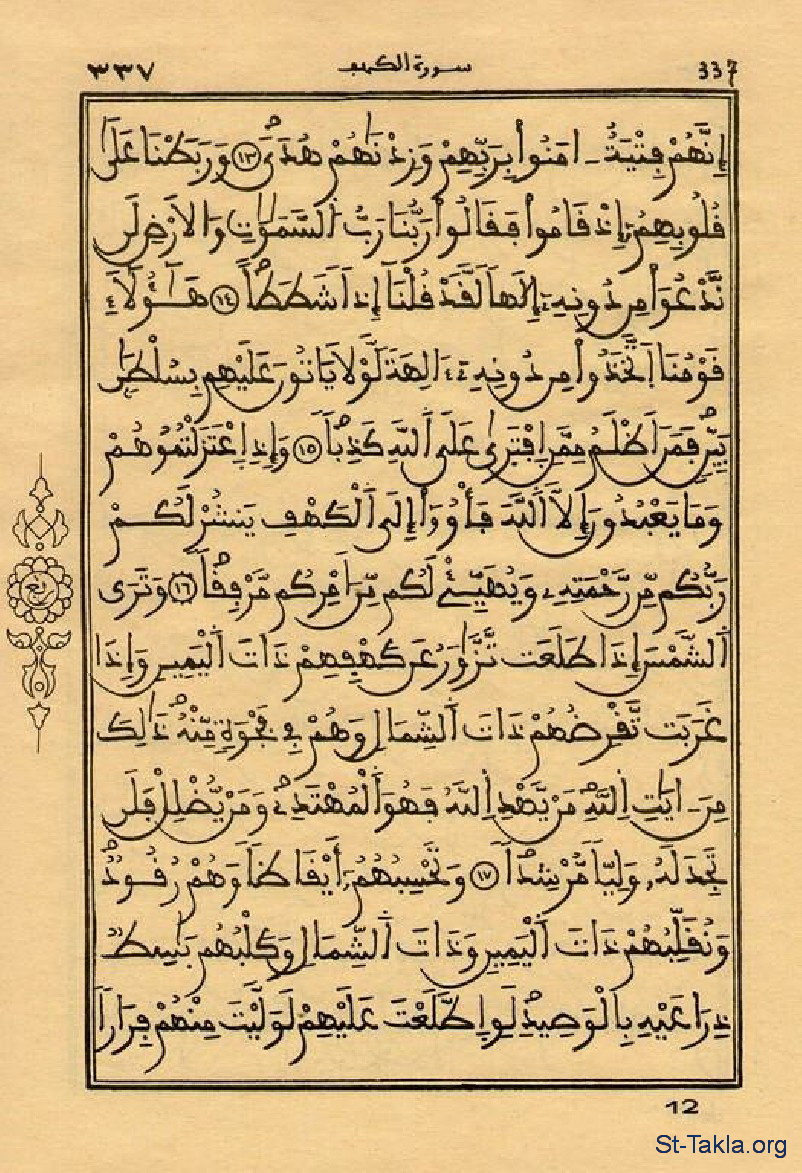 ٣٣٧ سورة الكهف 337
إِنَّهُمْ فِتْيَةٌ ـ امَنُواْ بِرَبِّهِمْ وَزِدْنَٰهُمْ هُدىً ١٣ وَرَبَطْنَا عَلَىٰ
قُلُوبِهِمُۥٓ إِذْ قَامُواْ فَقَالُواْ رَبُّنَا رَبُّ السَّمَٰوَٰتِ وَالَارْضِ لَن
نَّدْعُوَاْ مِن دُونِهِۦٓ إِلَٰهاً لَّقَدْ قُلْنَآ إِذاً شَطَطاً ١٤ هَٰٓؤُلَآءِ
قَوْمُنَا اَتَّخَذُواْ مِن دُونِهِۦٓ ءَالِهَةً لَّوْلَا يَاتُونَ عَلَيْهِم بِسُلْطَٰنٍ
بَيِّنٍ فَمَنَ اَظْلَمُ مِمَّنِ اِفْتَرَىٰ عَلَى اَللَّهِ كَذِباً ١٥ وَإِذِ اِعْتَزَلْتُمُوهُمْ
وَمَا يَعْبُدُونَ إِلَّا اَللَّهَ فَأْوُۥٓاْ إِلَى اَلْكَهْفِ يَنشُرْ لَكُمْ
رَبُّكُم مِّن رَّحْمَتِهِۦ وَيُهَيِّئْ لَكُم مِّنَ اَمْرِكُم مَّرْفِقاً ١٦ وَتَرَى
اَلشَّمْسَ إِذَا طَلَعَت تَّزَّٰوَرُ عَن كَهْفِهِمْ ذَاتَ اَلْيَمِينِ وَإِذَا
غَرَبَت تَّقْرِضُهُمْ ذَاتَ اَلشِّمَالِ وَهُمْ فِي فَجْوَةٍ مِّنْهُ ذَٰلِكَ
مِنَ ـ ايَٰتِ اِللَّهِ مَنْ يَّهْدِ اِللَّهُ فَهُوَ اَلْمُهْتَدِۦ وَمَنْ يُّضْلِلْ فَلَن
تَجِدَ لَهُۥ وَلِيّاً مُّرْشِداً ١٧ وَتَحْسِبُهُمُۥٓ أَيْقَاظاً وَهُمْ رُقُودٌ
وَنُقَلِّبُهُمْ ذَاتَ اَلْيَمِينِ وَذَاتَ اَلشِّمَالِ وَكَلْبُهُم بَٰسِطٌ
ذِرَاعَيْهِ بِالْوَصِيدِ لَوِ اِطَّلَعْتَ عَلَيْهِمْ لَوَلَّيْتَ مِنْهُمْ فِرَاراً
ربع
12
St-Takla.org